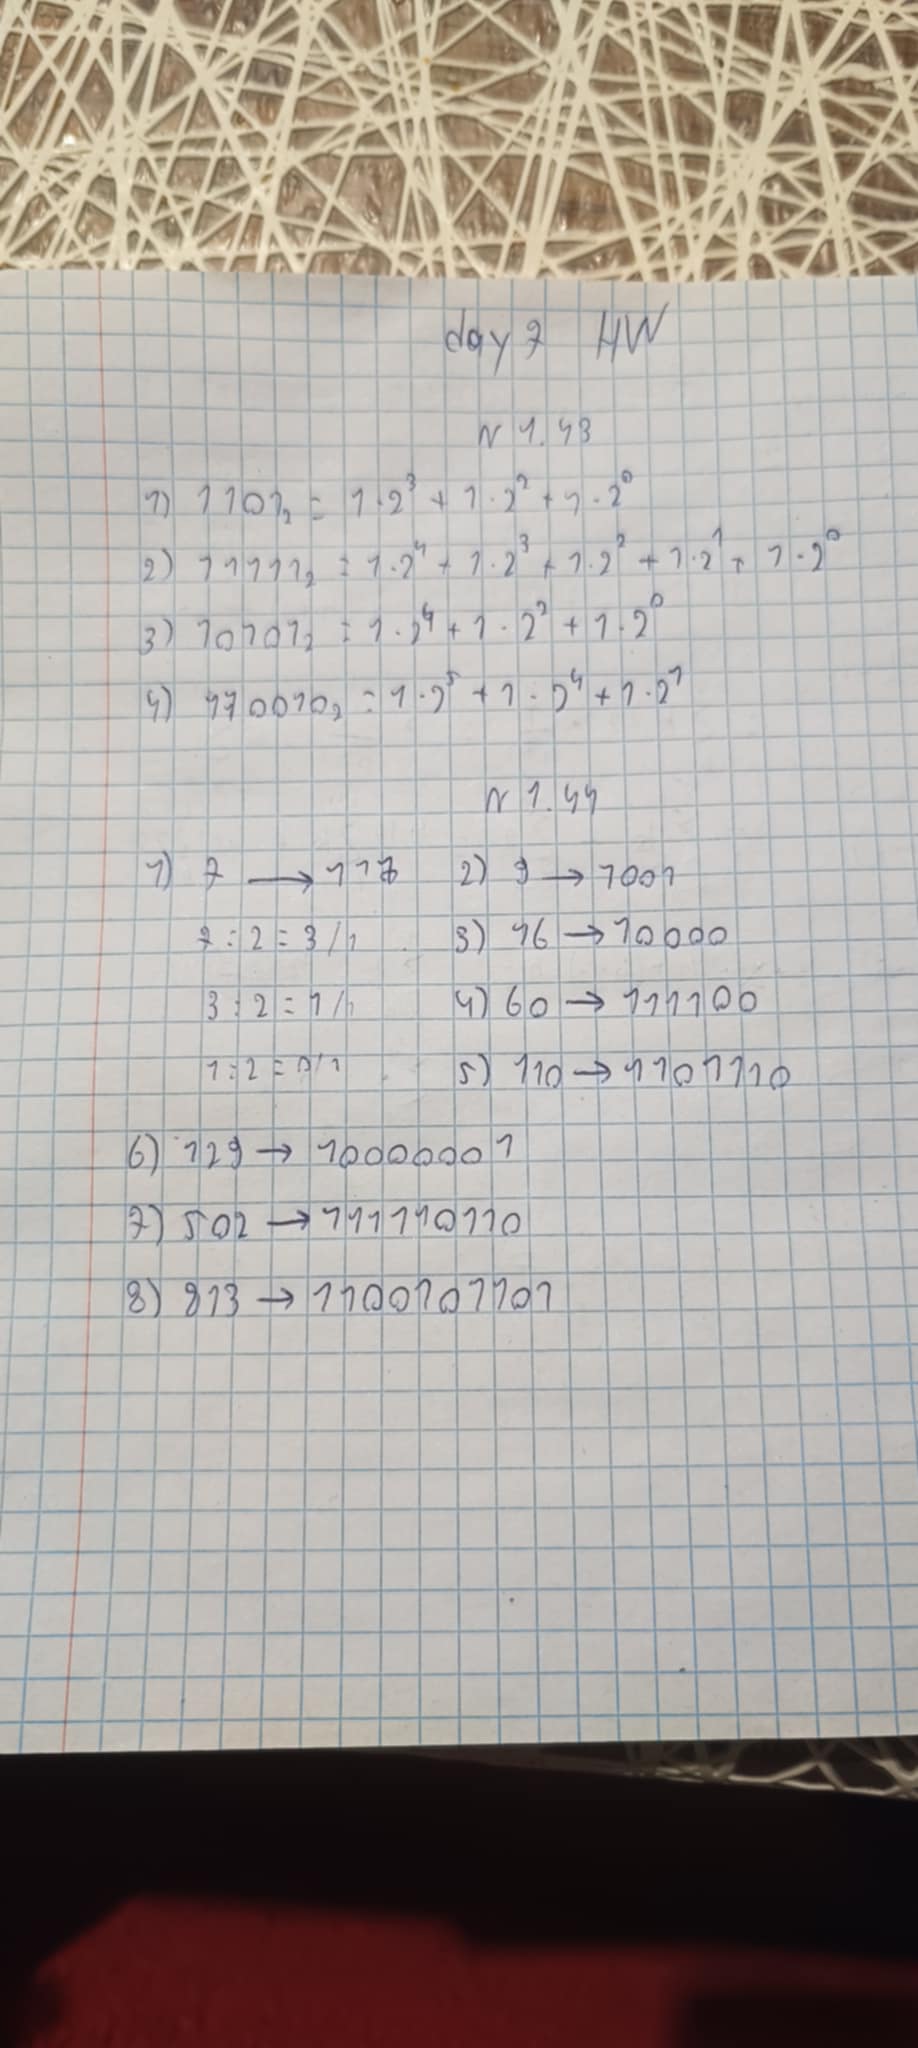 day 7 HW
N 1.43
1) 1101₂ = 1·2³ + 1·2² + 1·2⁰
2) 11111₂ = 1·2⁴ + 1·2³ + 1·2² + 1·2¹ + 1·2⁰
3) 10101₂ = 1·2⁴ + 1·2² + 1·2⁰
4) 110010₂ = 1·2⁵ + 1·2⁴ + 1·2¹
N 1.44
1) 7 → 111 2) 9 → 1001
7 : 2 = 3/1 3) 16 → 10000
3 : 2 = 1/1 4) 60 → 111100
1 : 2 = 0/1 5) 110 → 1101110
6) 129 → 10000001
7) 502 → 111110110
8) 813 → 1100101101